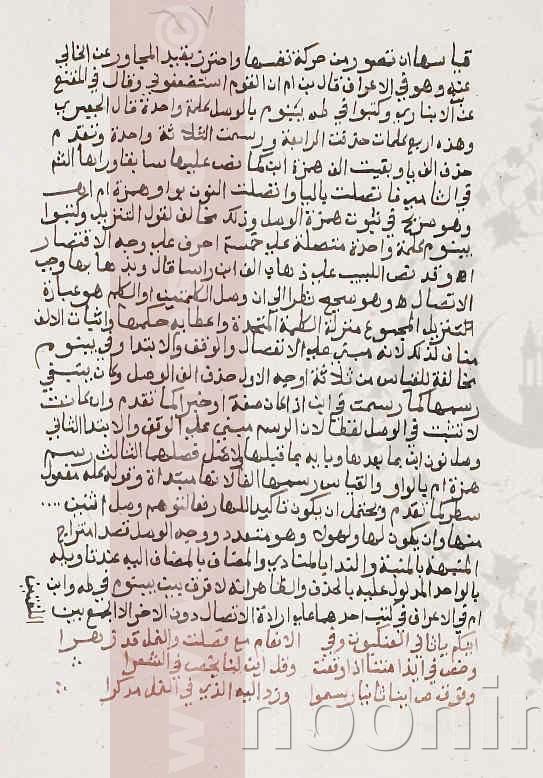 قياسها ان تصور من حركة نفسها واحترز بقيد المجاور عن الخالي
عنه وهو في الاعراف قال بن ام ان القوم استضعفوني وقال في المقنع
عن الانباري وكتبوا في طه يبنؤم بالوصل كلمة واحدة قال الجعبري
وهذه اربع كلمات حذفت الرابعة ورسمت الثلاثة واحدة وتقدم
حذف الف يا وبقيت الف همزة ابن كما نص عليها سابقا ورابها
فاتصلت بالياء واتصلت النون بواو همزة ام
وهو صريح في ثبوت همزة الوصل وذلك مخالف لقول التنزيل وكتبوا
يبنوم كلمة واحدة متصلة على خمسة احرف على وجه الاقتصار
اه وقد نص اللبيب على ذهاب الف ابن راسا قال وبذهابها وجب
الاتصال اه وهو صحيح نظرا الى ان وصل الكلمتين او الكلم هو عبارة
تنزيل المجموع منزلة الكلمة المتحدة واعطائه حكمها واثبات الالف
مناف لذلك لانه مبني على الانفصال والوقف والابتدا وفي يبنوم
مخالفة للقياس من ثلاثة اوجه الاول حذف الف الوصل وكان ينبغي
رسمها كما رسمت في ابن اذا كان صفة او خبرا كما تقدم وان كانت
لا تثبت في الوصل لفظا لان الرسم مبني على الوقف والابتدا الثاني
وصل نون ابن بما بعدها ويائه بما قبلها والاصل فصلهما الثالث رسم
همزة ام بالواو والقياس رسمها الفا لانها مبتداة وقوله كله مفعول
سطر كما تقدم ويحتمل ان يكون تاكيد اللهاء رفعا لتوهم وصل اثنين
منها وان يكون لها ولهؤلاء وهو متعدد ووجه الوصل قصد امتزاج
المنبهة بالمنبه والنداء بالمنادى والمضاف بالمضاف اليه عند تاويله
بالواحد المدلول عليه بالحذف والظاهر انه لا فرق بين يبنوم في طه وابن
ام في الاعراف في كتب احدهما على ارادة الاتصال دون الاخر الا الجمع بين
اللغتين
ايكم ياثاني العنكبوت وفي الانعام مع فصلت والنمل قد زهرا
وخص في ائذا متنا اذا وقعت وقل ائن لنا يخص في الشعرا
وفوق ص ائنا ثانيا رسموا وزد اليه الذي في النمل مدكرا
noonin